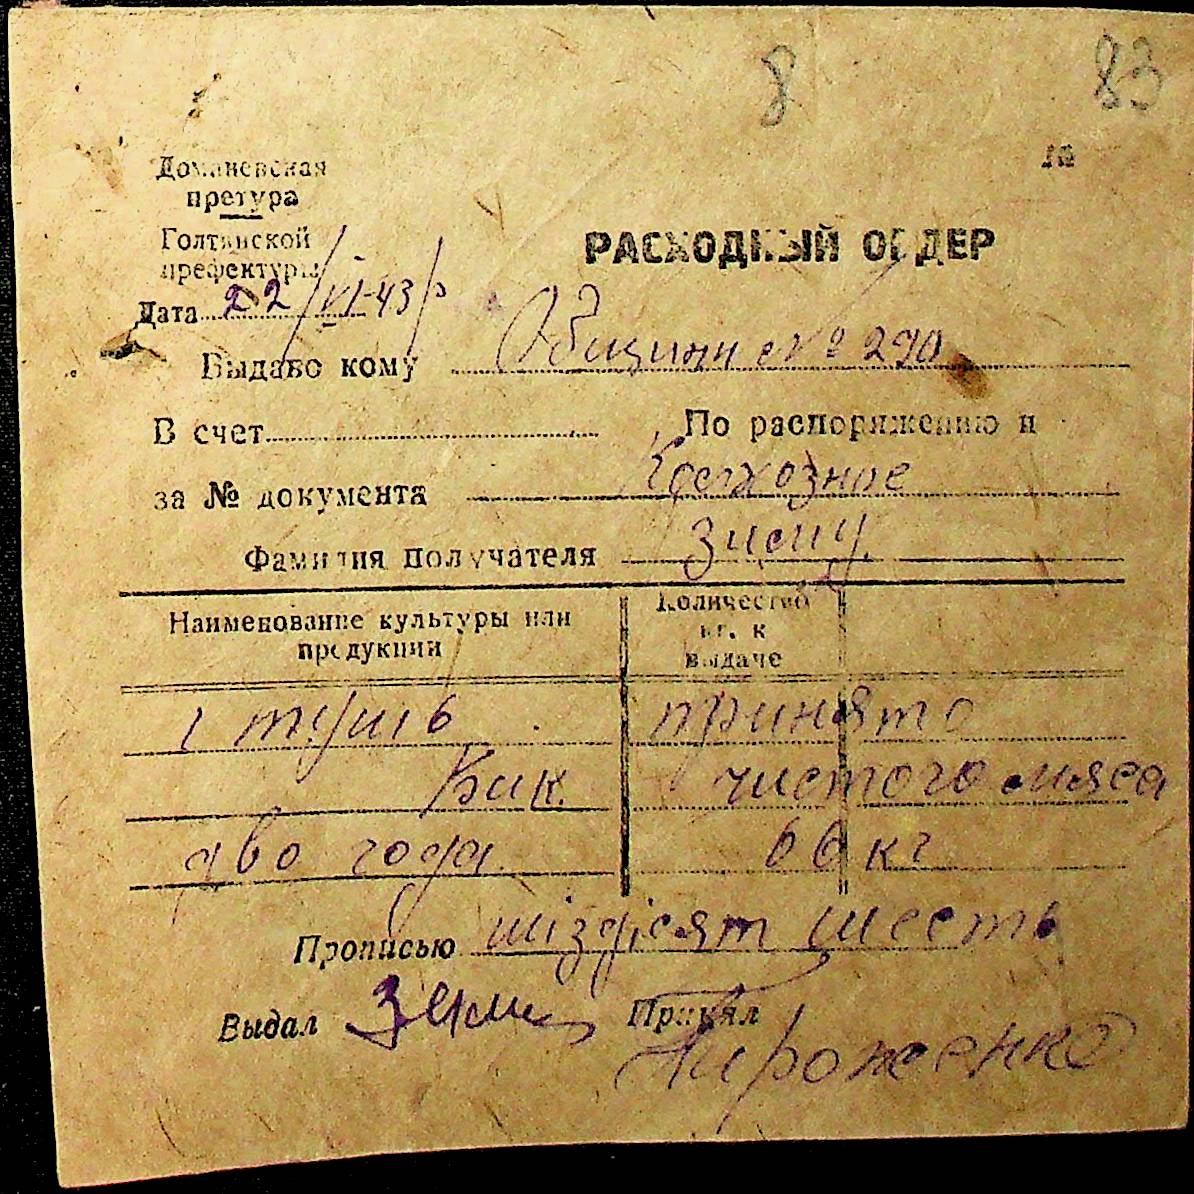 8 83
Доманевская
претура
№
Голтянской
префектуры
РАСХОДНЫЙ ОРДЕР
Дата 22/VI-43 р
Выдано кому Общини № 290
В счет По распоряжению и
за № документа
Фамилия получателя
Наименование культуры или
продукции
Количество
кг. к
выдаче
1 тушь принято
Бик чистого мяса
дво года 66 кг
Прописью шіздісят шесть
Выдал Принял